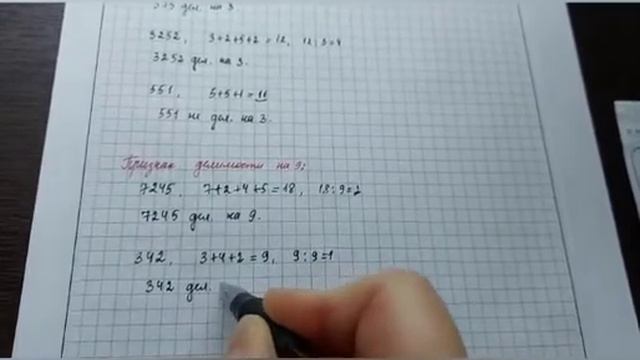 дел. на 3.
3252, 3+2+5+2=12, 12:3=4
3252 дел. на 3.
551, 5+5+1=11
551 не дел. на 3.
Признак делимости на 9:
7245, 7+2+4+5=18, 18:9=2
7245 дел. на 9.
342, 3+4+2=9, 9:9=1
342 дел.